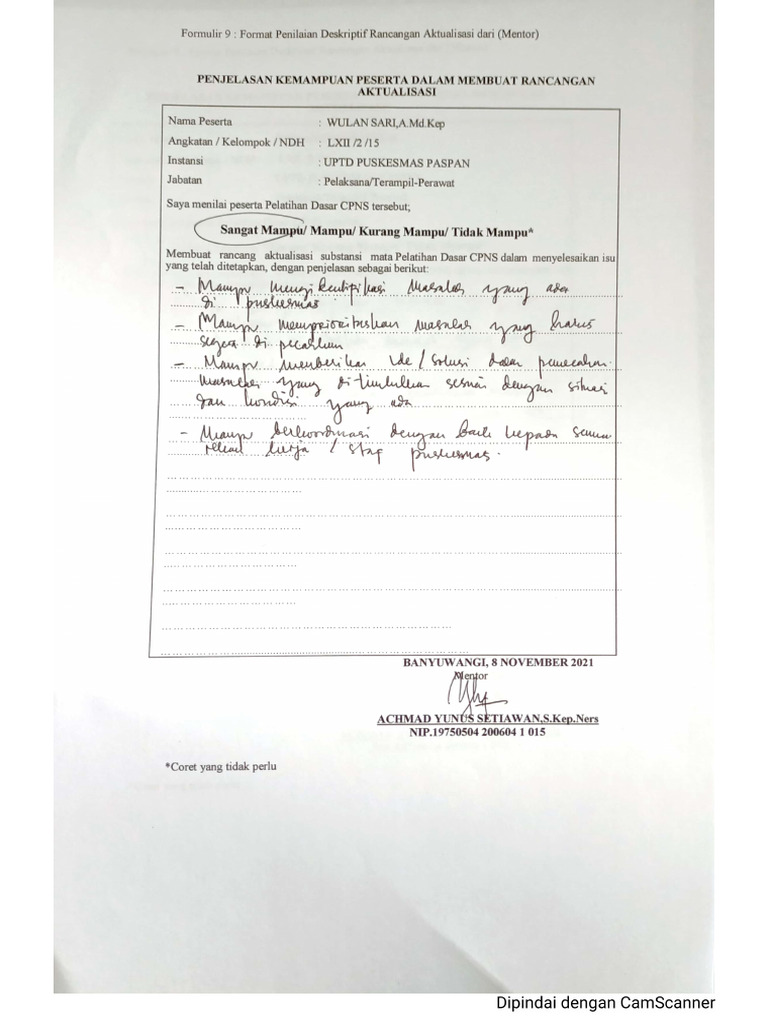 Formulir 9 : Format Penilaian Deskriptif Rancangan Aktualisasi dari (Mentor)
PENJELASAN KEMAMPUAN PESERTA DALAM MEMBUAT RANCANGAN
AKTUALISASI
Nama Peserta : WULAN SARI,A.Md.Kep
Angkatan / Kelompok / NDH : LXII /2 /15
Instansi : UPTD PUSKESMAS PASPAN
Jabatan : Pelaksana/Terampil-Perawat
Saya menilai peserta Pelatihan Dasar CPNS tersebut;
Sangat Mampu/ Mampu/ Kurang Mampu/ Tidak Mampu*
Membuat rancang aktualisasi substansi mata Pelatihan Dasar CPNS dalam menyelesaikan isu
yang telah ditetapkan, dengan penjelasan sebagai berikut:
- Mampu mengidentifikasi masalah yang ada
di puskesmas
- Mampu memprioritaskan masalah yang harus
segera di pecahkan
- Mampu memberikan ide / solusi dalam pemecahan
masalah yang ditimbulkan sesuai dengan situasi
dan kondisi yang ada
- Mampu berkoordinasi dengan baik kepada semua
rekan kerja / staf puskesmas.
BANYUWANGI, 8 NOVEMBER 2021
Mentor
ACHMAD YUNUS SETIAWAN,S.Kep.Ners
NIP.19750504 200604 1 015
*Coret yang tidak perlu
Dipindai dengan CamScanner